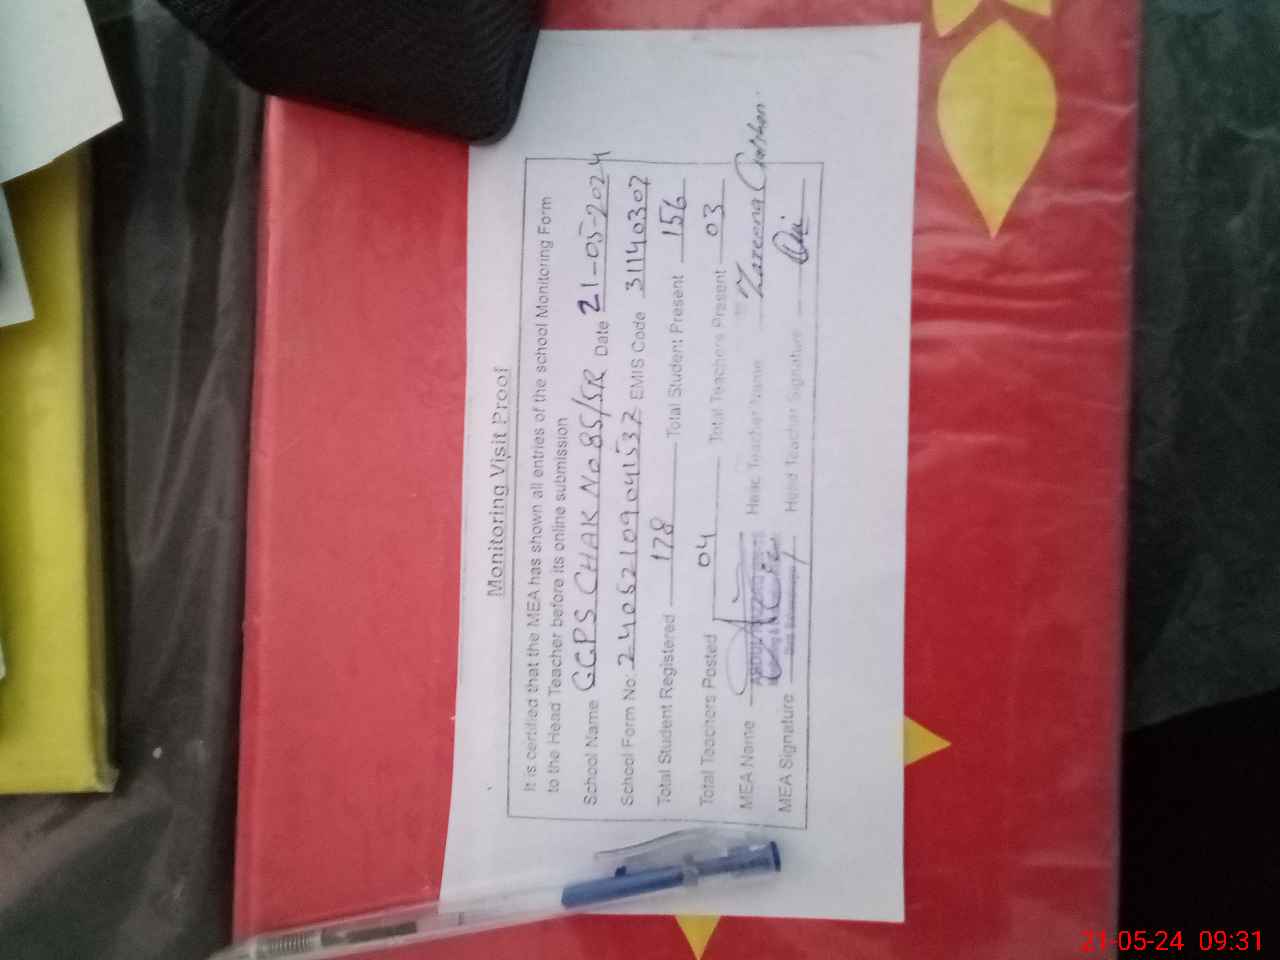 Monitoring Visit Proof
It is certified that the MEA has shown all entries of the school Monitoring Form
to the Head Teacher before its online submission
School Name GGPS CHAK No 85/5R Date 21-05-2024
School Form No: 24052109041537 EMIS Code 31140307
Total Student Registered 178 Total Student Present 156
Total Teachers Posted 04 Total Teachers Present 03
MEA Name Head Teacher Name Zareena
MEA Signature Head Teacher Signature
21-05-24 09:31